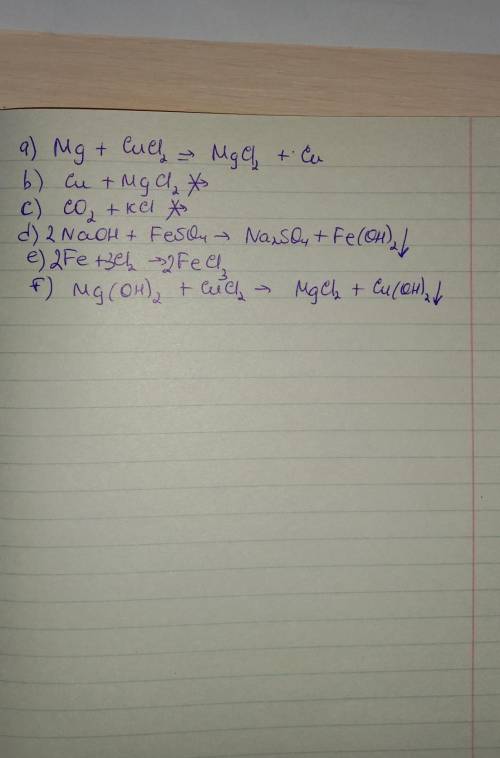 a) Mg + CuCl₂ ⇒ MgCl₂ + Cu
b) Cu + MgCl₂ ↛
c) CO₂ + KCl ↛
d) 2NaOH + FeSO₄ → Na₂SO₄ + Fe(OH)₂↓
e) 2Fe + 3Cl₂ → 2FeCl₃
f) Mg(OH)₂ + CuCl₂ → MgCl₂ + Cu(OH)₂↓